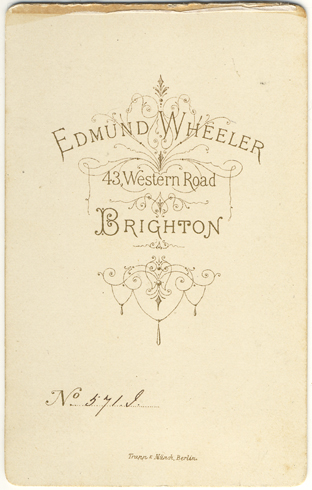 EDMUND WHEELER
43, Western Road
BRIGHTON
No 571
Trapp & Münch, Berlin.